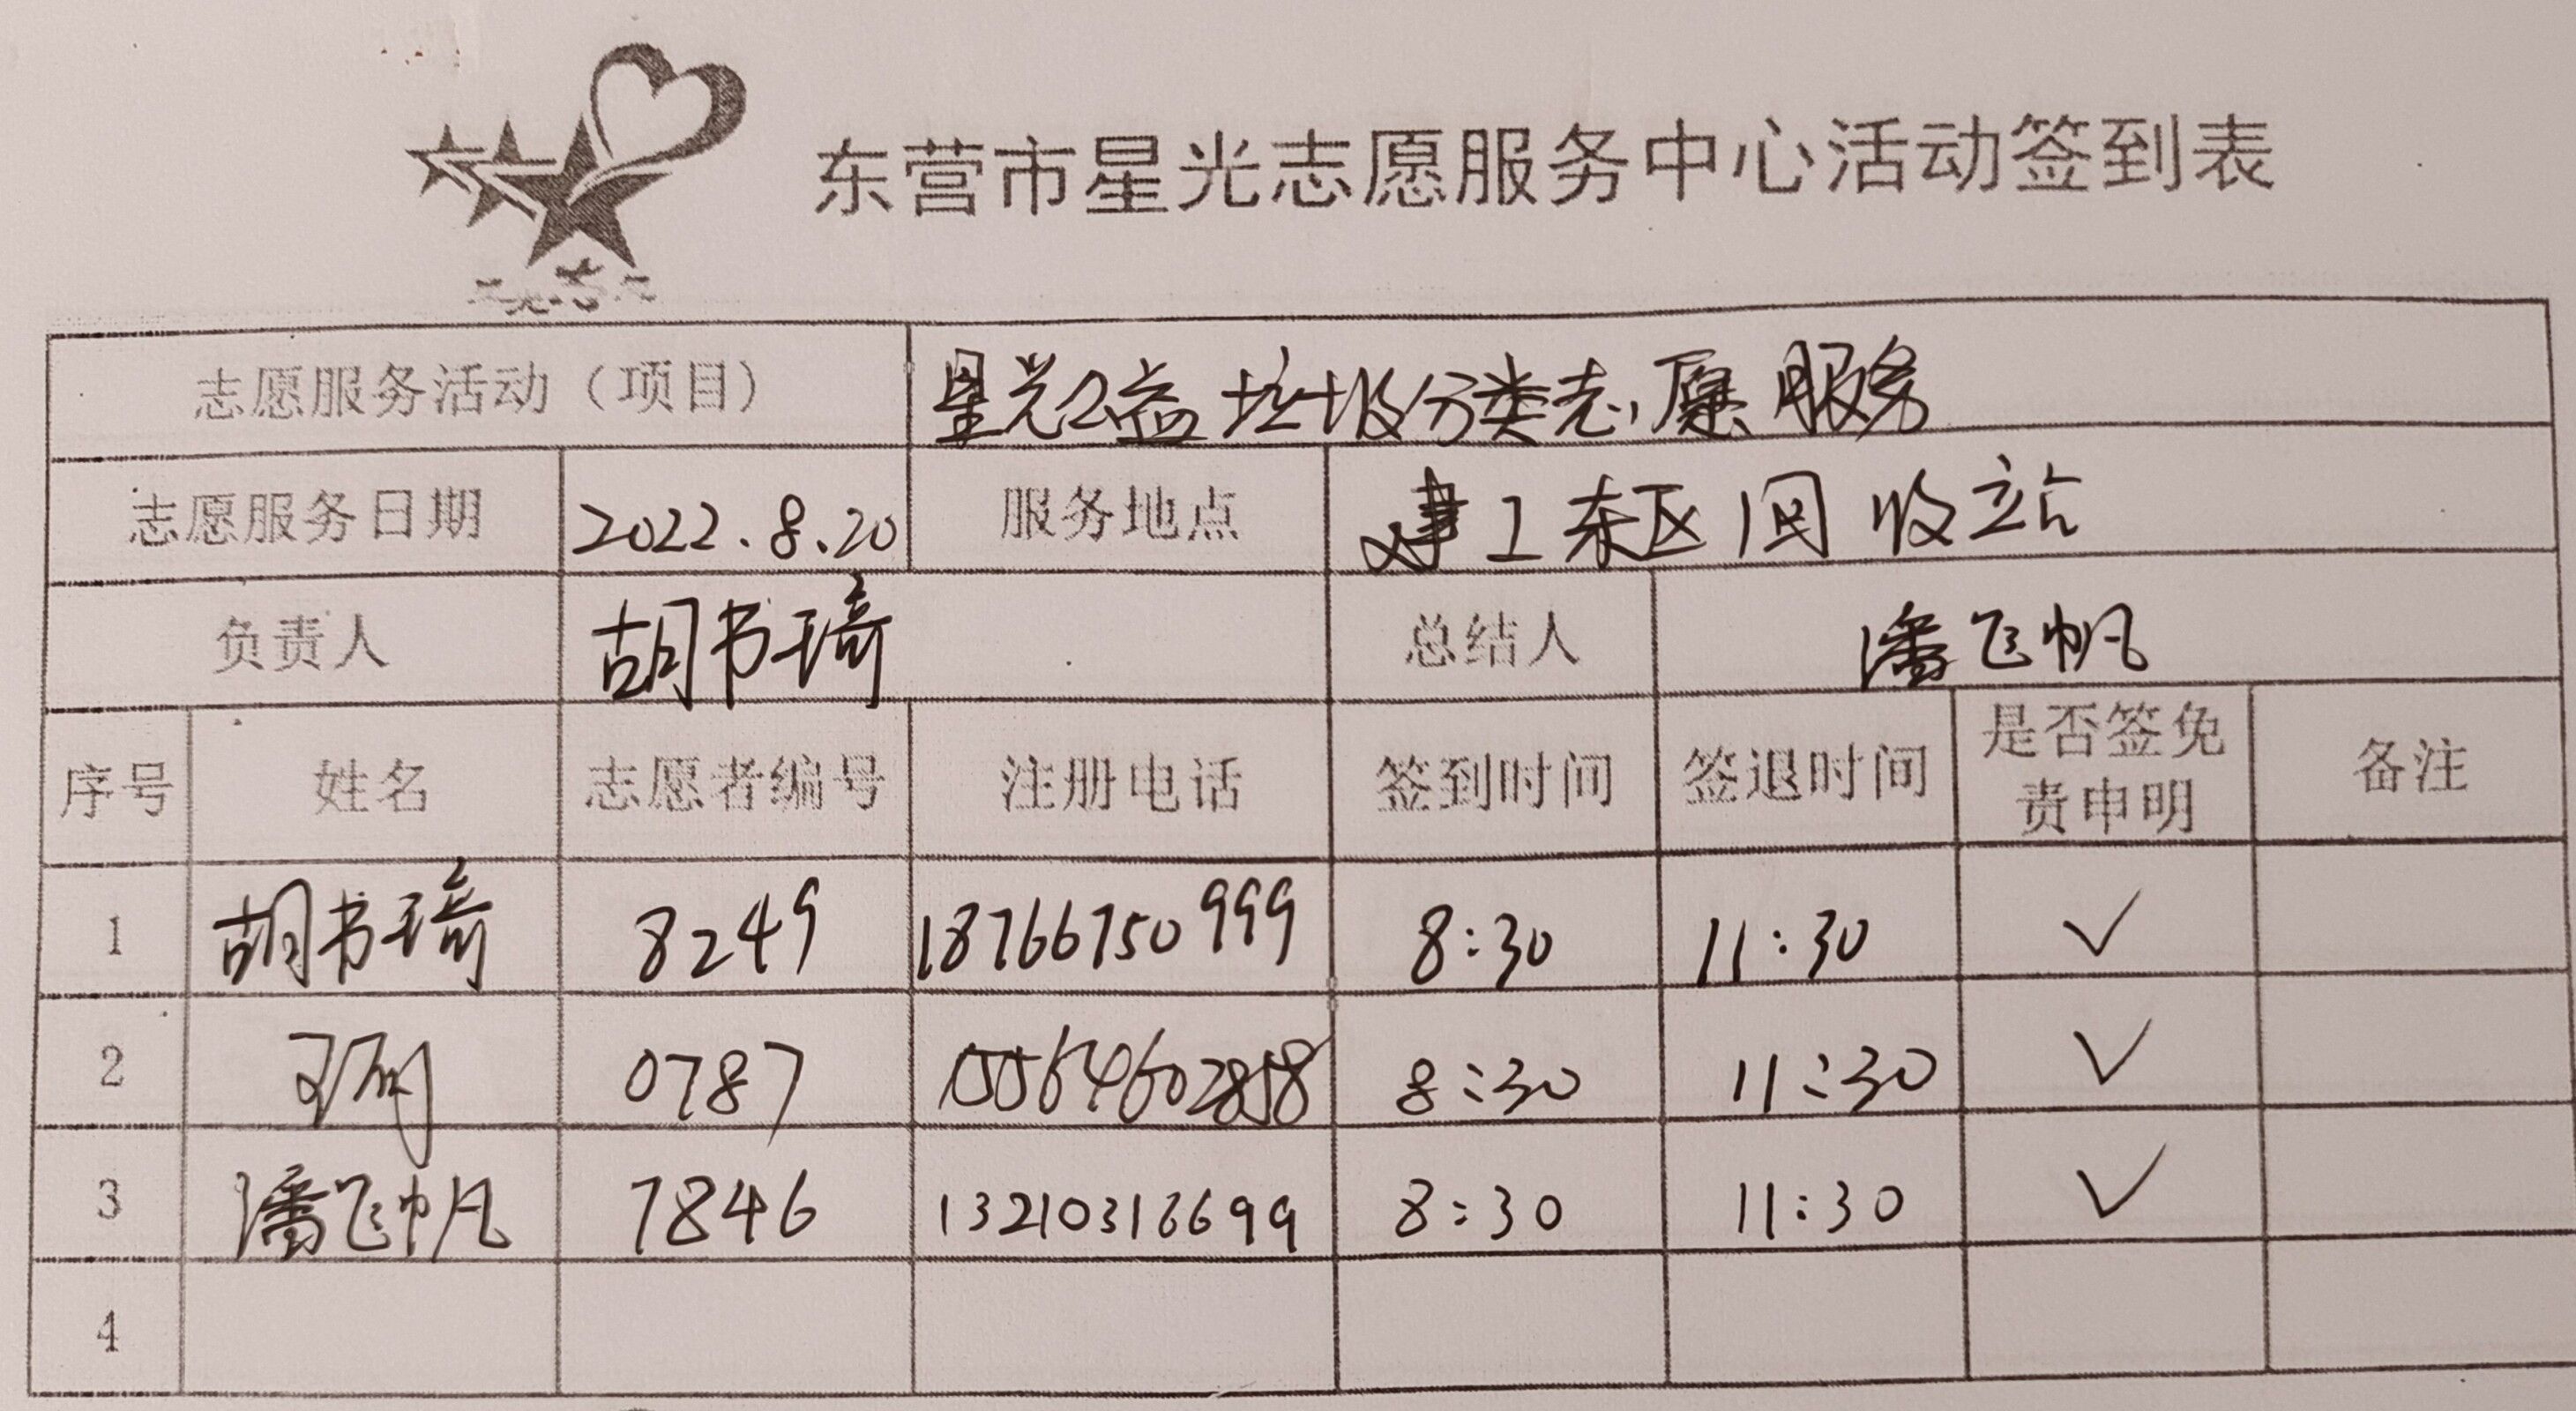 东营市星光志愿服务中心活动签到表
志愿服务活动（项目） 星光公益垃圾分类志愿服务
志愿服务日期 2022.8.20 服务地点 建工东区回收站
负责人 胡书琦 总结人 潘飞帆
序号 姓名 志愿者编号 注册电话 签到时间 签退时间 是否签免责申明 备注
1 胡书琦 8249 18766750999 8:30 11:30 ✓
2 0787 15564602858 8:30 11:30 ✓
3 潘飞帆 7846 13210316699 8:30 11:30 ✓
4